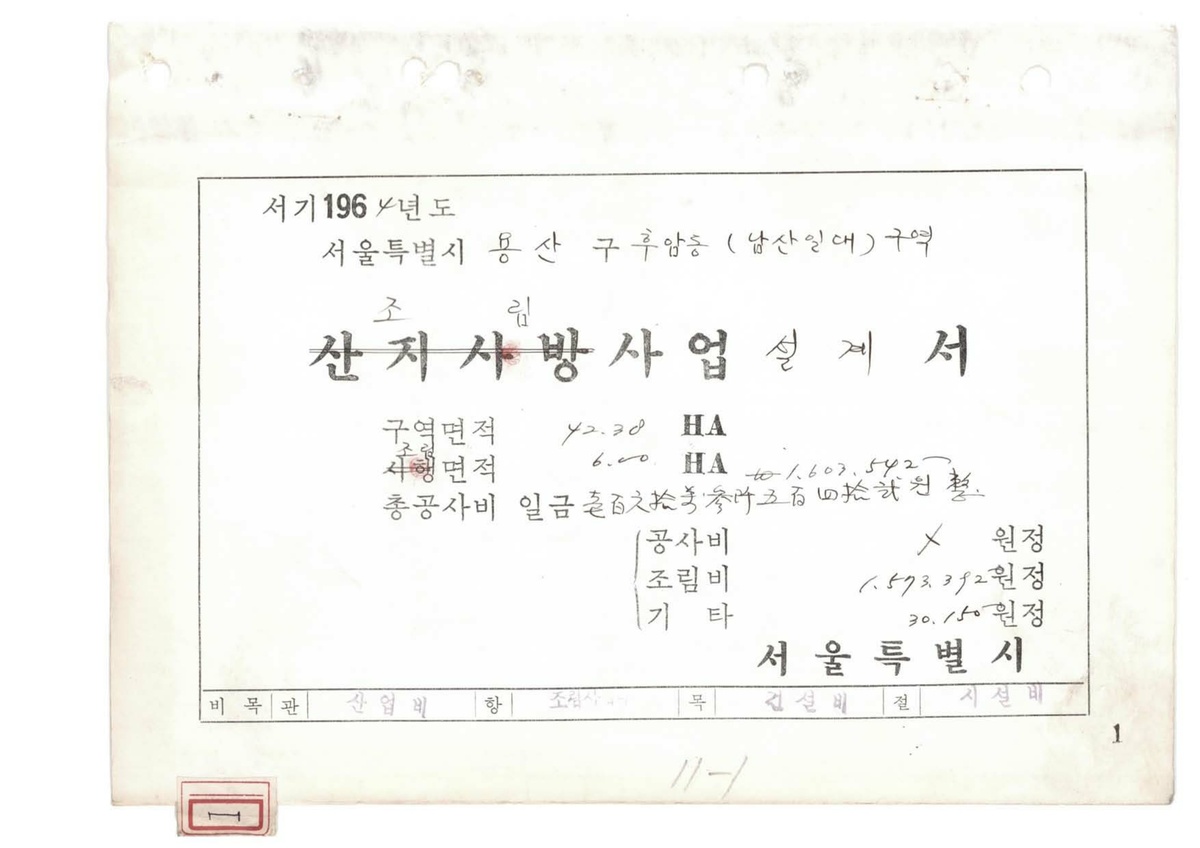 서기196 4년도
서울특별시 용산 구 후암동 (남산일대) 구역
조 림
산지사방사업 설계 서
구역면적 42.38 HA
조림
시행면적 6.00 HA
1.603.542
총공사비 일금 壱百六拾萬参阡五百四拾弐원 整
공사비 X 원정
조림비 1.573.392 원정
기 타 30.150 원정
서울특별시
비 목 관 산업비 항 조림사 목 건설비 절 시설비
1
11-1
1